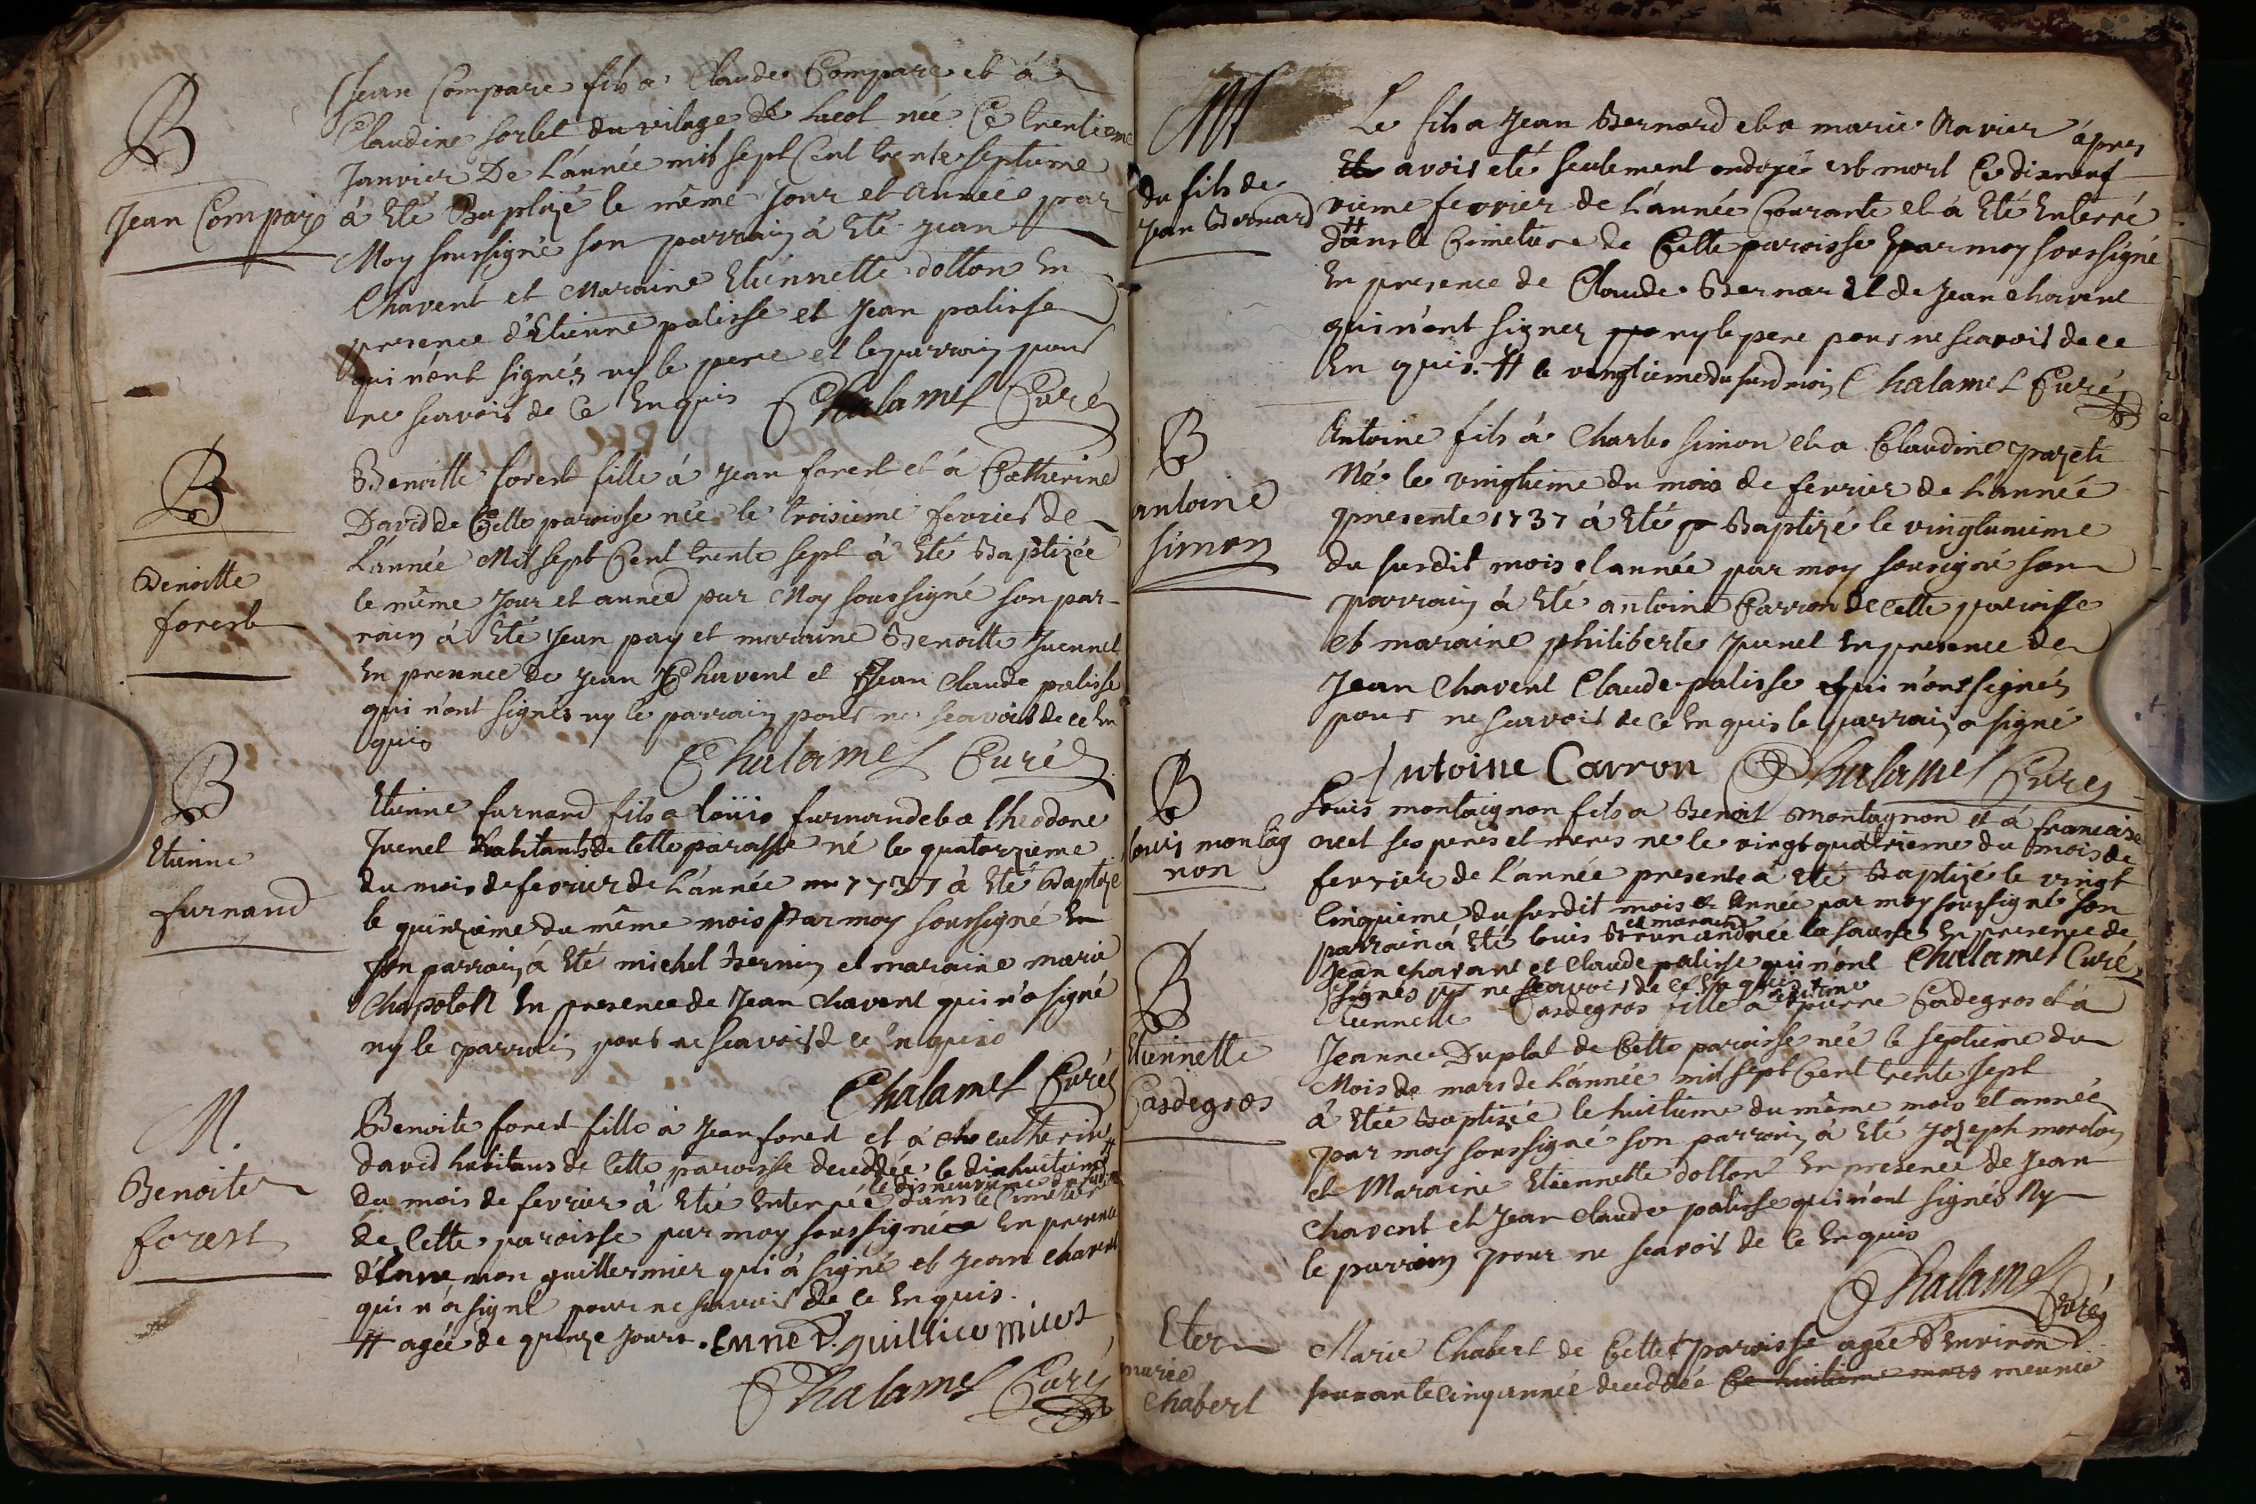 B
Jean Compare
Jean Compare fils a Claude Compare et à
Claudine sorlet du vilage de Lucol née Ce trentieme
Janvier De L'année mil sept Cent trente septieme
à Eté Baptizé le même Jour et Année par
Moy soussigné son parrain à Eté jean
Chavent et Maraine Etiennette dolton En
presence d'Etienne palisse et Jean palisse
qui n'ont signés ny le pere et le parrain pour
ne scavoir de Ce Enquis Chalamel Curé
B
Benoitte
forest
Benoitte forest fille á jean forest et á Catherine
David de Cette paroisse née le troisieme fevrier de
L'année Mil sept Cent trente sept à Eté Baptizée
le même Jour et année par Moy soussigné son par-
rain à Eté jean pay et maraine Benoitte Juennet
En presence de jean Chavent et Jean Claude palisse
qui n'ont signés ny le parrain pour ne scavoir de ce En
quis
Chalamel Curé
B
Etienne
furnand
Etienne furnand fils a loüis furnand et a theodone
Juenel habitants de Cette paroisse né le quatorzieme
du mois de fevrier de L'année 1737 à Eté Baptizé
le quinzieme du même mois Par moy soussigné
son parrain á Eté michel Bernin et maraine marie
Chapoton En presence de Jean Chavent qui n'a signé
ny le parrain pour ne scavoir de ce Enquis
Chalamel Curé
M.
Benoite
forest
Benoite forest fille à jean forest et á catherine
david habitans de Cette paroisse decedée le dixhuitieme #
le disneuvieme du
du mois de fevrier à Eté Enterrée dans le Cimetiere
de Cette paroisse par moy soussigné En presence
d'Ennemon guillermier qui á signé et jean Chavent
qui n'a signé pour ne scavoir de ce Enquis.
# agée de quinze jours. Enne guillermier
Chalamel Curé
M
du fils de
Jean Bernard
Le fils a Jean Bernard et a marie Ravier après
avoir eté seulement ondoyé est mort Ce dixneuf
vieme fevrier de L'année Courante et á Eté Enterré
# dans le Cimetiere de Cette paroisse par moy soussigné
En presence de Claude Bernard et de Jean Chavent
qui n'ont signez ny le pere pour ne scavoir de ce
En quis. # le vingtieme du susd mois Chalamel Curé
B
antoine
simon
Antoine fils á Charles simon et a Claudine
Né le vingtieme du mois de fevrier de L'année
presente 1737 á Eté Baptizé le vingtunieme
du susdit mois et année par moy sousigné son
parrain á Eté antoine Carron de Cette paroisse
et maraine philiberte Junel En presence de
Jean Chavent Claude palisse qui n'ont signés
pour ne scavoir de Ce En quis le parrain a signé
Antoine Carron Chalamel Curé
B
louis montag
non
Louis montaignon fils a Benoit montagnon et a francaise
neel ses peres et meres né le vingt quatrieme du mois de
fevrier de L'année presente á eté Baptizé le vingt
Cinquieme du susdit mois et Année par moy soussigné son
et maraine
parrain á Eté louis la sausse En presence de
Jean Chavant et Claude palisse qui n'ont Chalamel Curé
signés ne scavoir de ce En quis
B
Etiennette
Casdegros
Etiennette Casdegros fille á pierre Casdegros et á
Jeanne Duplat de Cette paroisse née le septieme du
Mois de mars de L'année mil sept Cent trente sept
á Etée Baptizée le huitieme du même mois et année
par moy soussigné son parrain á Eté Joseph mordon
et Maraine Etiennette dolton En presence de Jean
Chavent et Jean Claude palisse qui n'ont signés Ny
le parrain pour ne scavoir de Ce Enquis
Chalamel
Curé
Eter
marie
Chabert
Marie Chabert de Cette paroisse agée d'Environ
soixante Cinq année decedée Ce huitieme mars